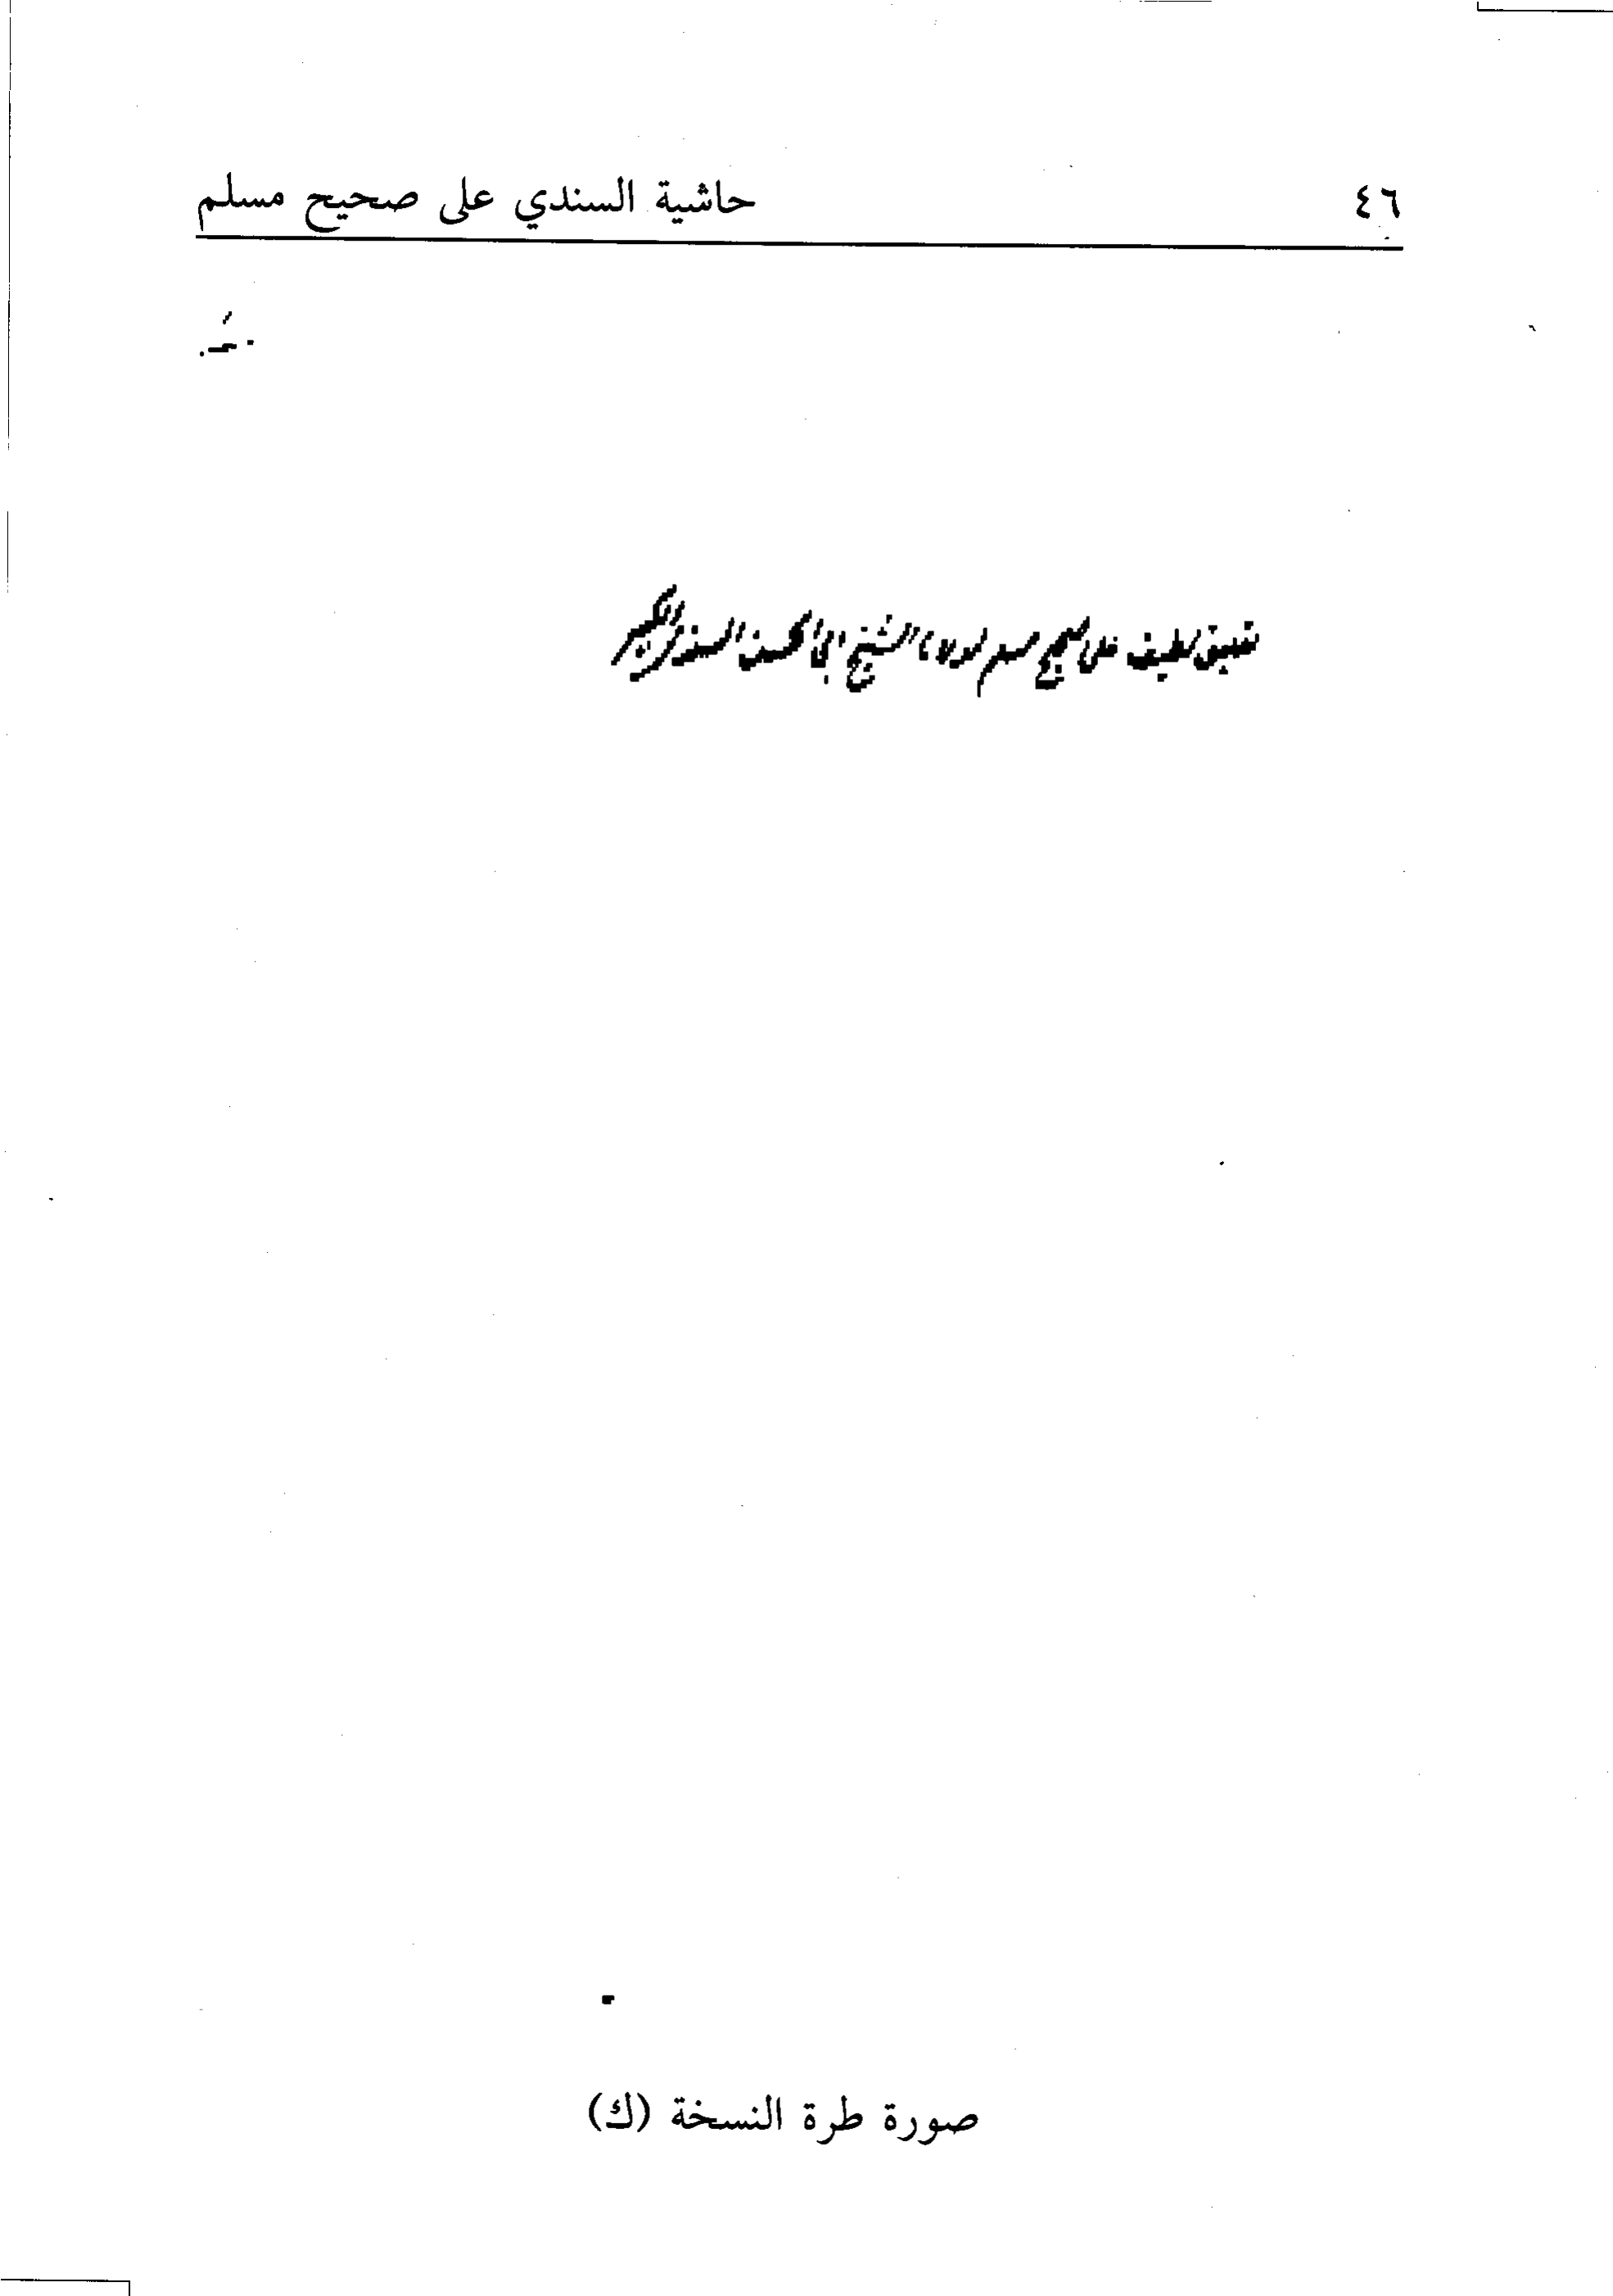 ٤٦ حاشية السندي على صحيح مسلم
تعليق لطيف على صحيح مسلم لمولانا الشيخ أبي الحسن السندي
صورة طرة النسخة (ك)